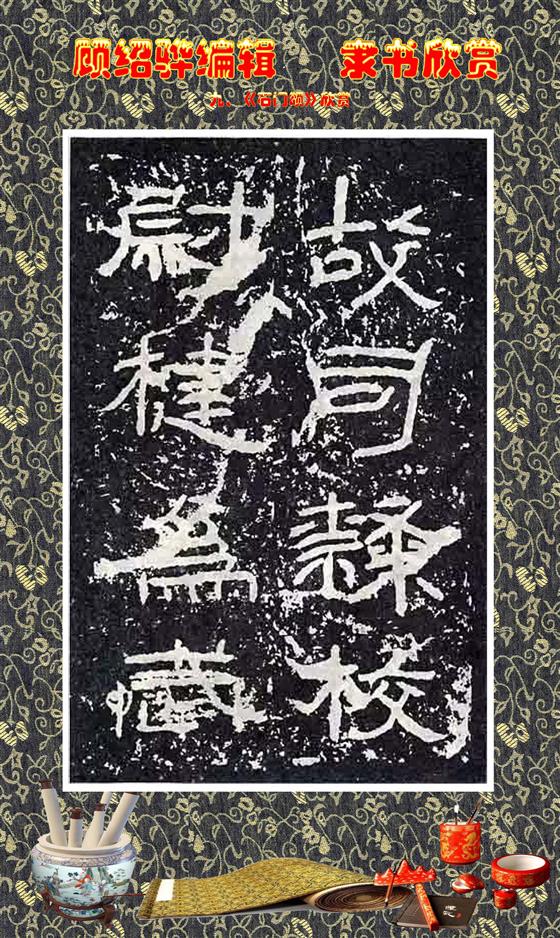 顾绍骅编辑 隶书欣赏
九、《石门颂》欣赏
故司隸校
尉楗為武